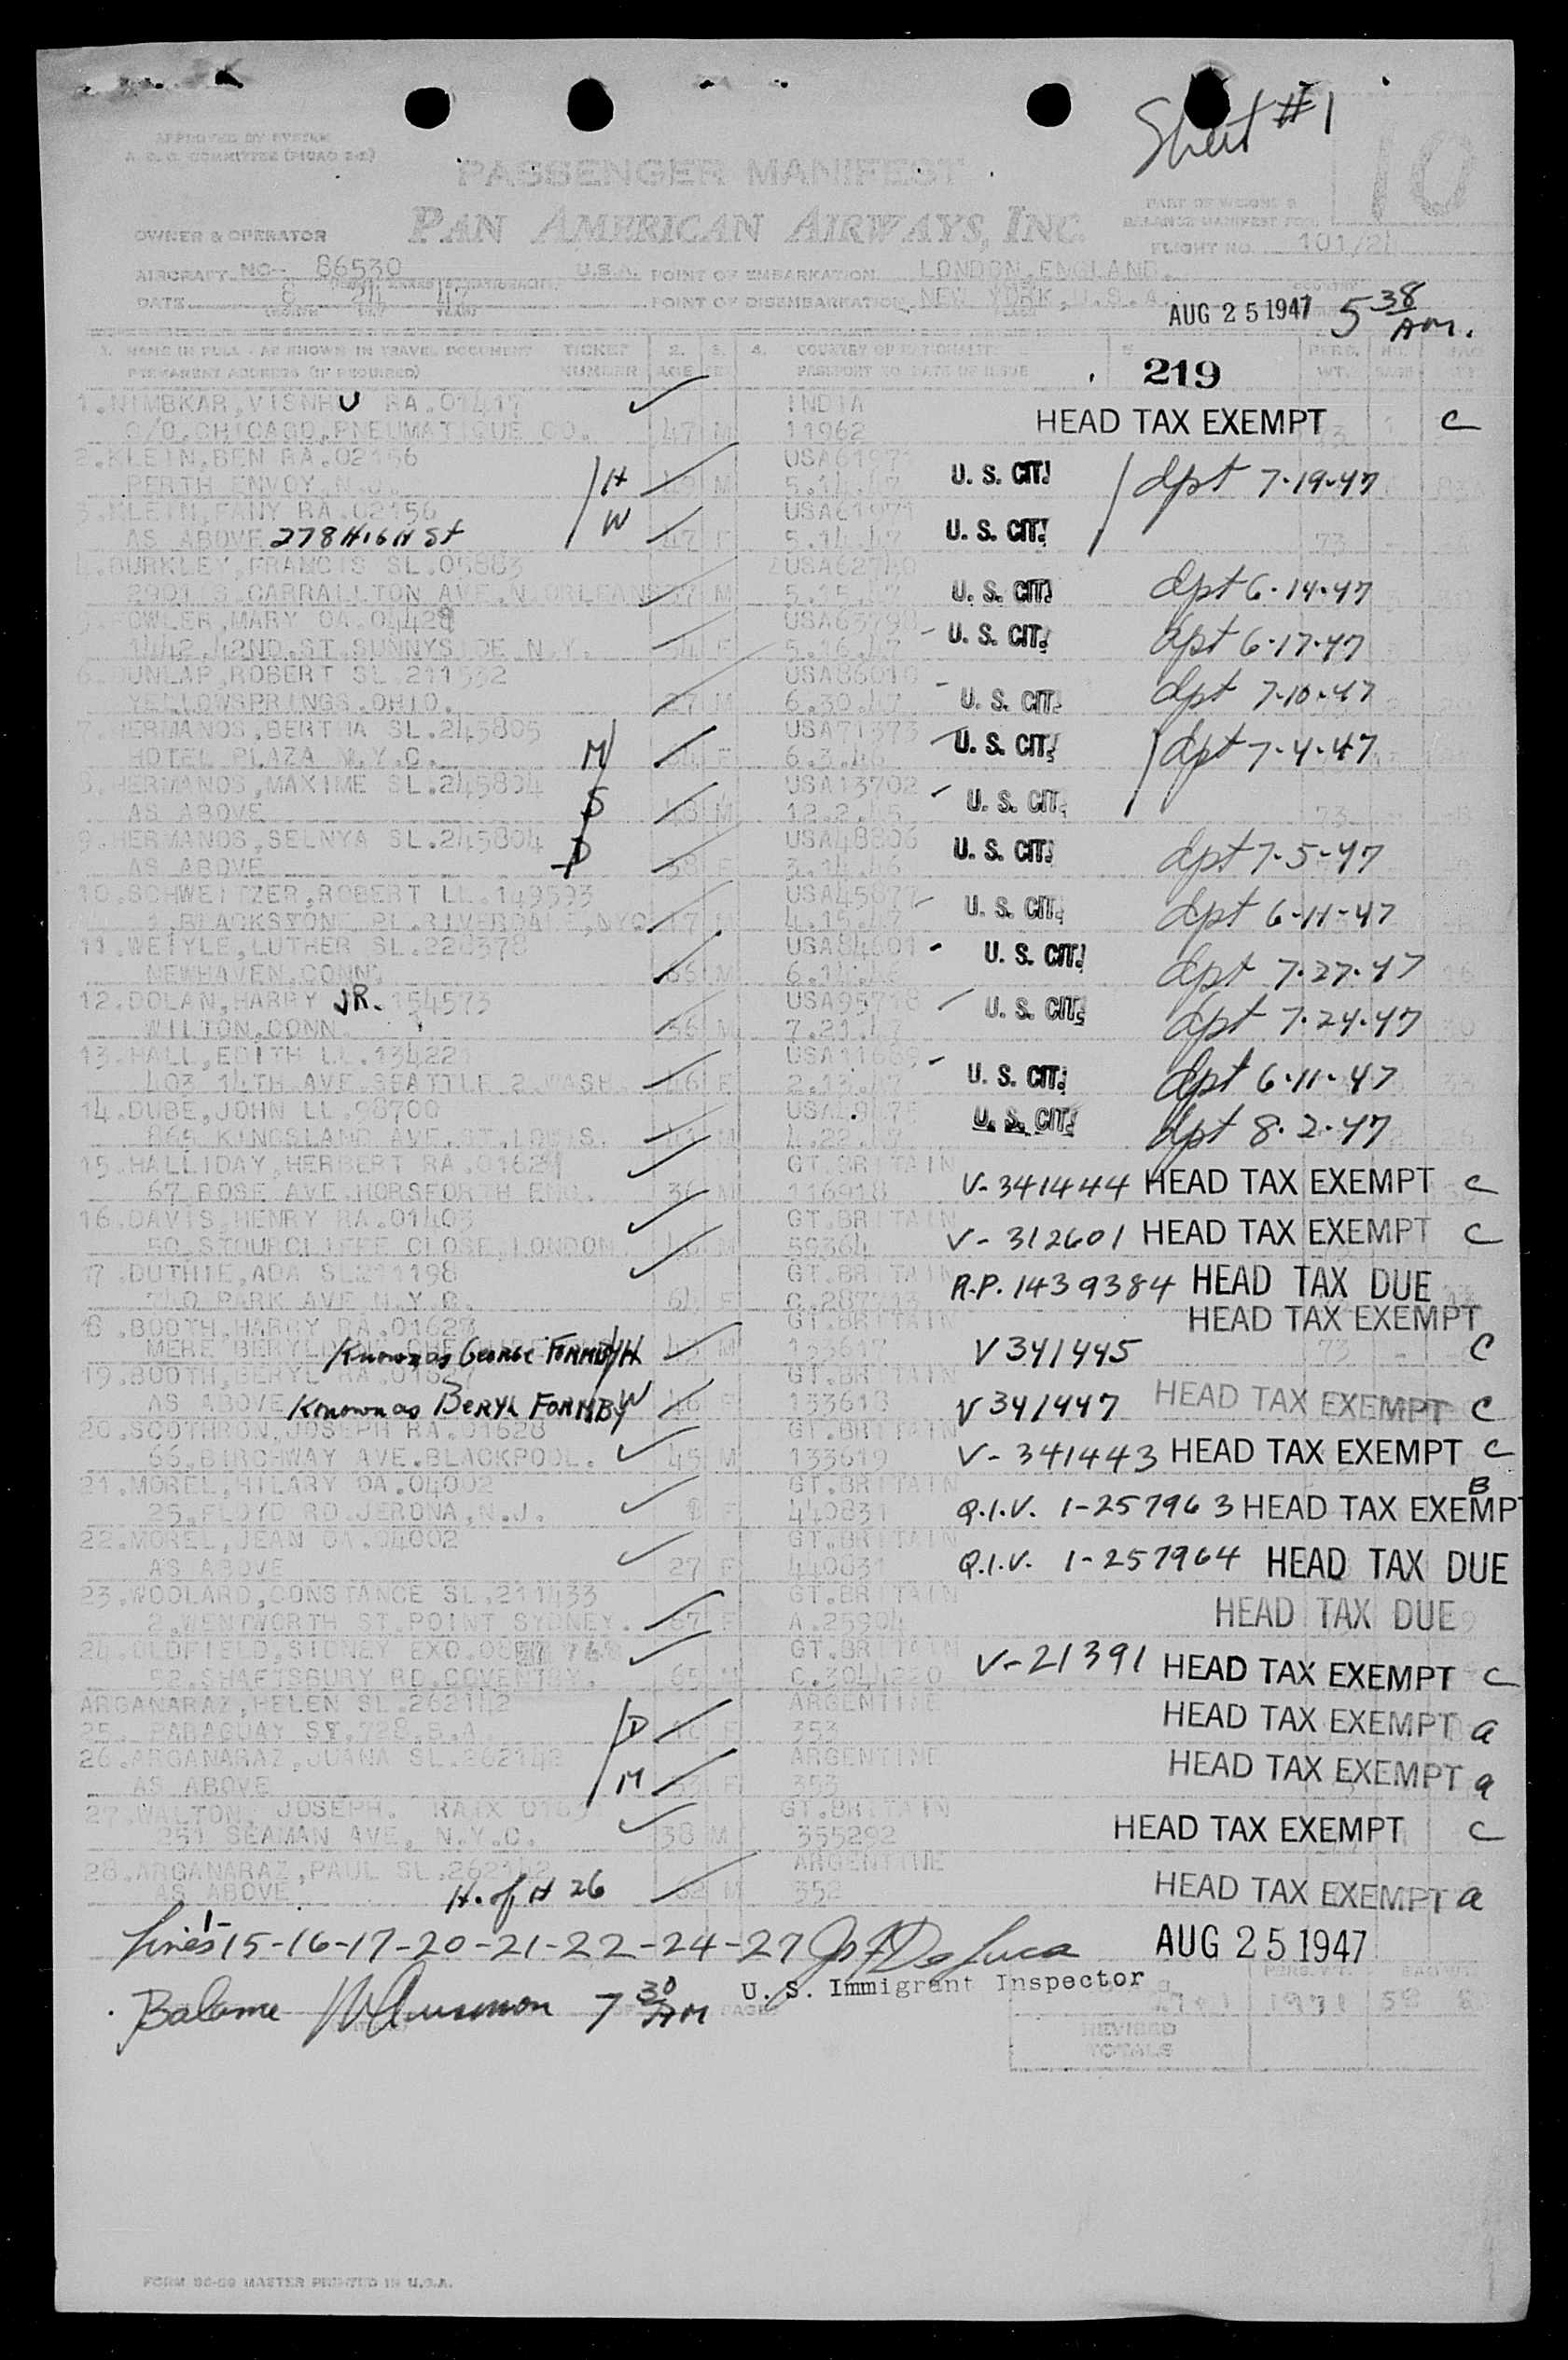 Sheet #1
10
APPROVED BY SYSTEM
PASSENGER MANIFEST
PAN AMERICAN AIRWAYS, INC.
PART OF WEIGHT &
BALANCE MANIFEST FOR
OWNER & OPERATOR
FLIGHT NO. 101/24
AIRCRAFT NC- 86530 U.S.A. POINT OF EMBARKATION LONDON, ENGLAND.
DATE 8 24 47 POINT OF DISEMBARKATION NEW YORK, U.S.A.
MONTH DAY YEAR
AUG 25 1947 5 38 AM.
1. NAME IN FULL - AS SHOWN IN TRAVEL DOCUMENT TICKET 2. 3. 4. COUNTRY OF NATIONALITY 5
PERMANENT ADDRESS (IF REQUIRED) NUMBER AGE PASSPORT NO. DATE OF ISSUE 219 WT.
1.NIMBKAR,VISNHU RA.01417 INDIA
C/O.CHICAGO.PNEUMATIQUE CO. 47 M 11962 HEAD TAX EXEMPT C
2.KLEIN,BEN RA.02156 USA61971
PERTH ENVOY H M 5.14.47 U. S. CIT. dpt 7-19-47
3.KLEIN,FANY RA.02156 USA61971
AS ABOVE 278 HIGH St W 47 F 5.14.47 U. S. CIT. 73
4.BURKLEY,FRANCIS SL.05883 USA62740
S.CARRALLTON AVE.N.ORLEANS M 5.15.47 U. S. CIT. dpt 6-14-47
FOWLER,MARY OA.04428 USA63790
1442.42ND.ST.SUNNYSIDE N.Y. F 5.16.47 U. S. CIT. dpt 6-17-47
6. DUNLAP,ROBERT SL.211532 USA86010
YELLOWSPRINGS.OHIO. 27 M 6.30.47 U. S. CIT. dpt 7-10-47
7.HERMANOS,BERTHA SL.245805 USA71373
HOTEL PLAZA N.Y.C. M F 6.3.46 U. S. CIT. dpt 7-4-47
8.HERMANOS,MAXIME SL.245804 USA13702
AS ABOVE S M 12.2.45 U. S. CIT. 73
9.HERMANOS,SELNYA SL.245804 USA48806
AS ABOVE D 38 F 3.14.46 U. S. CIT. dpt 7-5-47
10.SCHWEITZER,ROBERT LL.149593 USA45877
1,BLACKSTONE PL.RIVERDALE,NYC 17 M 4.15.47 U. S. CIT. dpt 6-11-47
11.WEIYLE,LUTHER SL.220378 USA84601
NEWHAVEN.CONN. 66 M 6.14.46 U. S. CIT. dpt 7-27-47
12.DOLAN,HARRY JR. 154573 USA95718
WILTON.CONN. 36 M 7.21.47 U. S. CIT. dpt 7-24-47
13.HALL,EDITH LL.134221 USA11685
403 14TH AVE.SEATTLE 2.WASH. 46 F 2.13.47 U. S. CIT. dpt 6-11-47
14.DUBE,JOHN LL.98700
865 KINGSLAND AVE. ST.LOUIS. 41 M 4.22.47 U. S. CIT. dpt 8-2-47
15.HALLIDAY,HERBERT RA.01629 GT.BRITAIN
67 ROSE AVE.HORSFORTH ENG. 36 M 116918 V-341444 HEAD TAX EXEMPT C
16.DAVIS,HENRY RA.01403 GT.BRITAIN
50.STOURCLIFFE CLOSE,LONDON. M 59364 V-312601 HEAD TAX EXEMPT C
17.DUTHIE,ADA SL211198 GT.BRITAIN
740 PARK AVE N.Y.C. 64 F R.P. 1439384 HEAD TAX DUE
18.BOOTH,HARRY RA.01628 GT.BRITAIN HEAD TAX EXEMPT
MERE BERYLDENE Known as GEORGE FORMBY H M 133617 V 341445 73 - C
19.BOOTH,BERYL RA.01627 GT.BRITAIN
AS ABOVE Known as BERYL FORMBY W 46 F 133618 V 341447 HEAD TAX EXEMPT C
20.SCOTHRON,JOSEPH RA.01628 GT.BRITAIN
66,BIRCHWAY AVE.BLACKPOOL. 45 M 133619 V-341443 HEAD TAX EXEMPT C
21.MOREL,HILARY OA.04002 GT.BRITAIN B
25,FLOYD RD.JERONA,N.J. F 440831 Q.I.V. 1-257963 HEAD TAX EXEMPT
22.MOREL,JEAN OA.04002 GT.BRITAIN
AS ABOVE 27 F 440831 Q.I.V. 1-257964 HEAD TAX DUE
23.WOOLARD,CONSTANCE SL.211433 GT.BRITAIN
2.WENTWORTH ST.POINT SYDNEY. 67 F A.25904 HEAD TAX DUE
24.OLDFIELD,SIDNEY EXO. GT.BRITAIN
52.SHAFTSBURY RD.COVENTRY. 65 M C.3044220 V-21391 HEAD TAX EXEMPT C
ARGANARAZ,HELEN SL.262142 ARGENTINE
25. PARAGUAY ST.728.B.A. D F 353 HEAD TAX EXEMPT a
26.ARGANARAZ,JUANA SL.262142 ARGENTINE
AS ABOVE M 53 F 353 HEAD TAX EXEMPT a
27.WALTON, JOSEPH. RAIX GT.BRITAIN
251 SEAMAN AVE, N.Y.C. 38 M 355292 HEAD TAX EXEMPT C
28.ARGANARAZ,PAUL SL.262142 ARGENTINE
AS ABOVE H. of H 26 62 M 352 HEAD TAX EXEMPT a
Lines 1-15-16-17-20-21-22-24-27 Jos F De Luca AUG 25 1947
U. S. Immigrant Inspector
Balance 7 30 AM
REVISED
TOTALS
FORM MASTER PRINTED IN U.S.A.